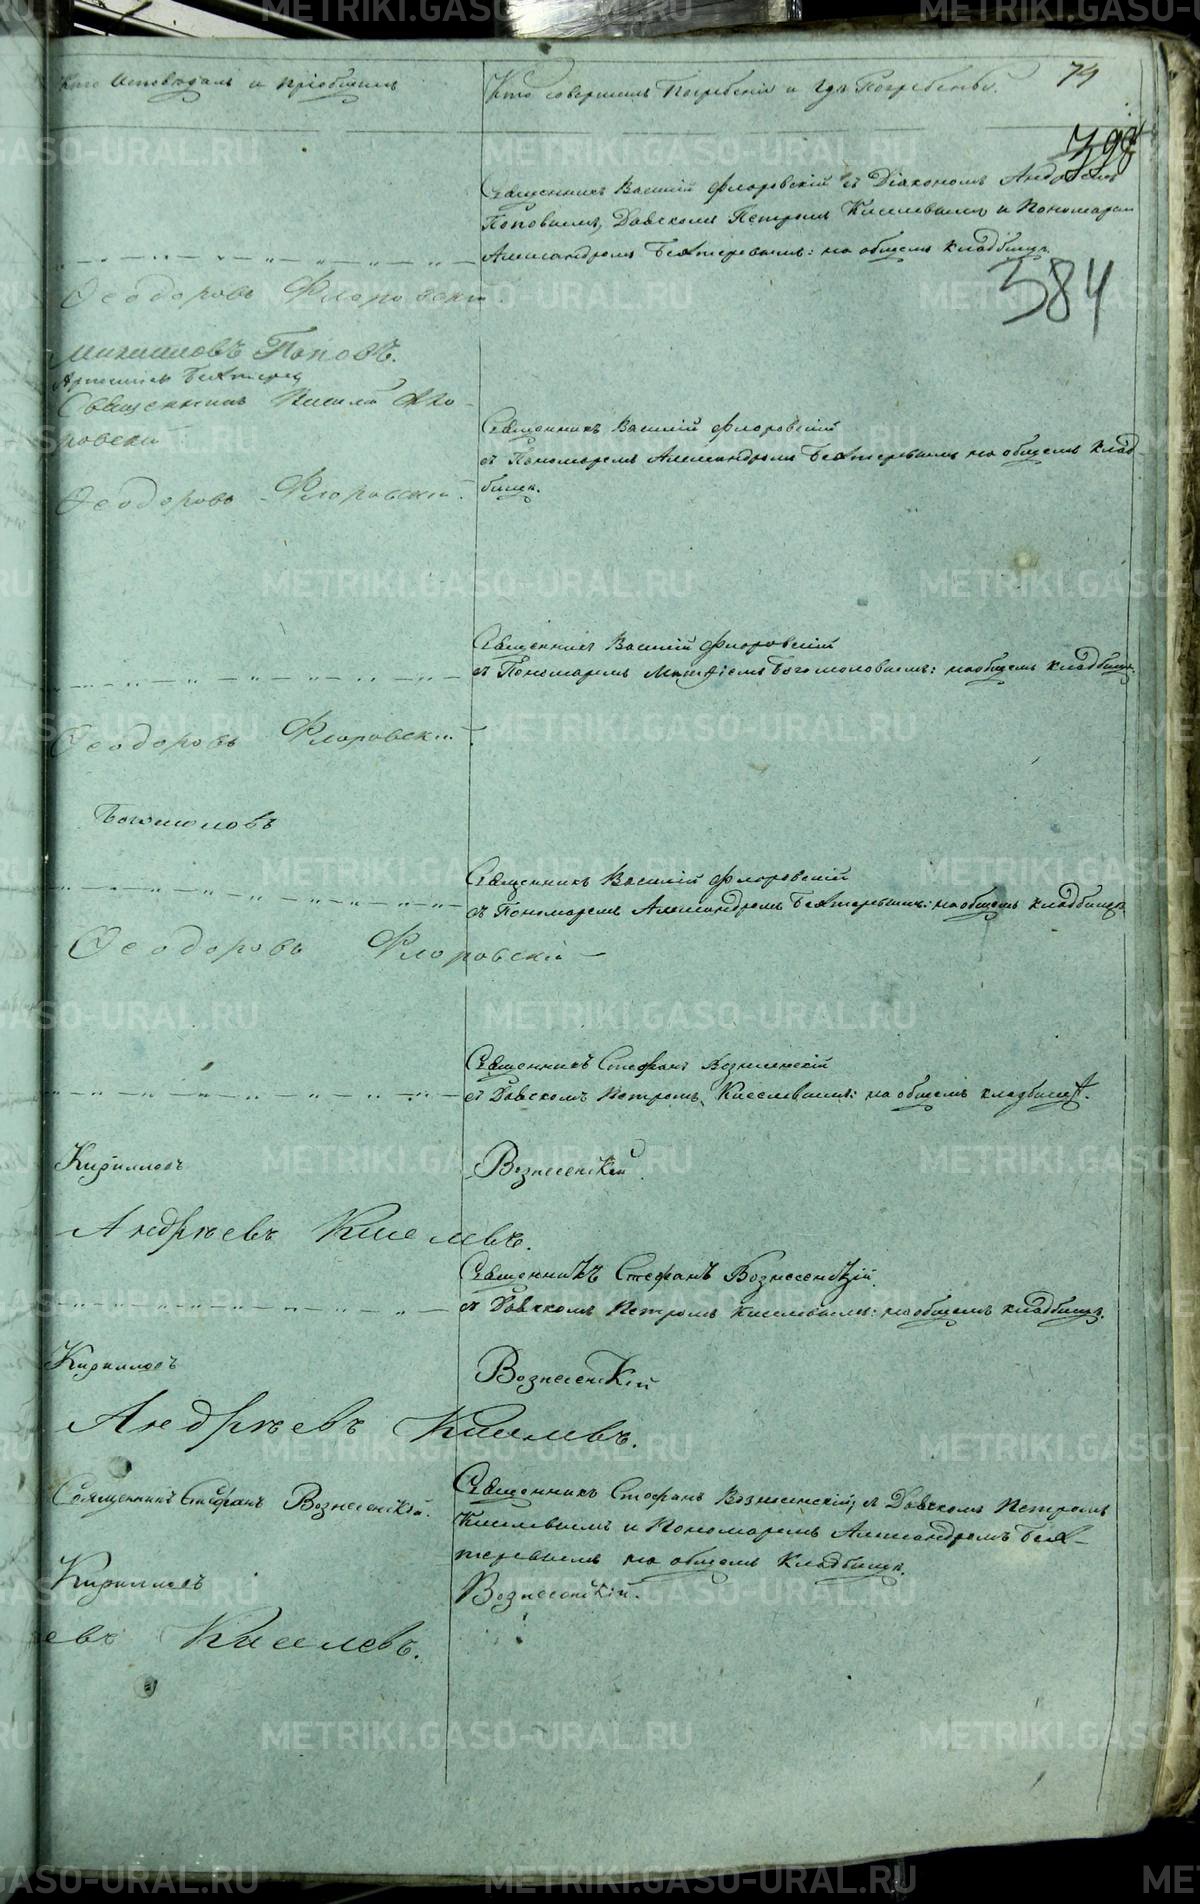 Кто Исповѣдалъ и пріобщилъ
Кто совершилъ Погребеніе и гдѣ Погребены.
79
398
384
Священникъ Василій Флоровскій съ Діакономъ Андреемъ
Поповымъ, Дьячкомъ Петромъ Киселевымъ и Пономаремъ
Александромъ Бехтеревымъ: на общемъ кладбищѣ.
Ѳеодоровъ Флоровскій.
Михаиловъ Поповъ.
Бехтерев
Священникъ Василій Фло-
ровскій
Священникъ Василій Флоровскій
съ Пономаремъ Александромъ Бехтеревымъ на общемъ клад-
бищѣ.
Ѳеодоровъ Флоровскій.
Священникъ Василій Флоровскій
съ Пономаремъ Матѳіемъ Богомоловымъ: на общемъ кладбищѣ.
Ѳеодоровъ Флоровскій
Богомоловъ
Священникъ Василій Флоровскій
съ Пономаремъ Александромъ Бехтеревымъ: на общемъ кладбищѣ.
Ѳеодоровъ Флоровскій
Священникъ Стефанъ Вознесенскій
съ Дьячкомъ Петромъ Киселевымъ: на общемъ кладбищѣ.
Кирилловъ Вознесенскій
Андреевъ Киселевъ.
Священникъ Стефанъ Вознесенскій
съ Дьячкомъ Петромъ Киселевымъ: на общемъ кладбищѣ.
Кирилловъ Вознесенскій
Андреевъ Киселевъ.
Священникъ Стефанъ Вознесенскій.
Священникъ Стефанъ Вознесенскій, съ Дьячкомъ Петромъ
Киселевымъ и Пономаремъ Александромъ Бех-
теревымъ на общемъ Кладбищѣ.
Кирилловъ Вознесенскій.
евъ Киселевъ.
METRIKI.GASO-URAL.RU